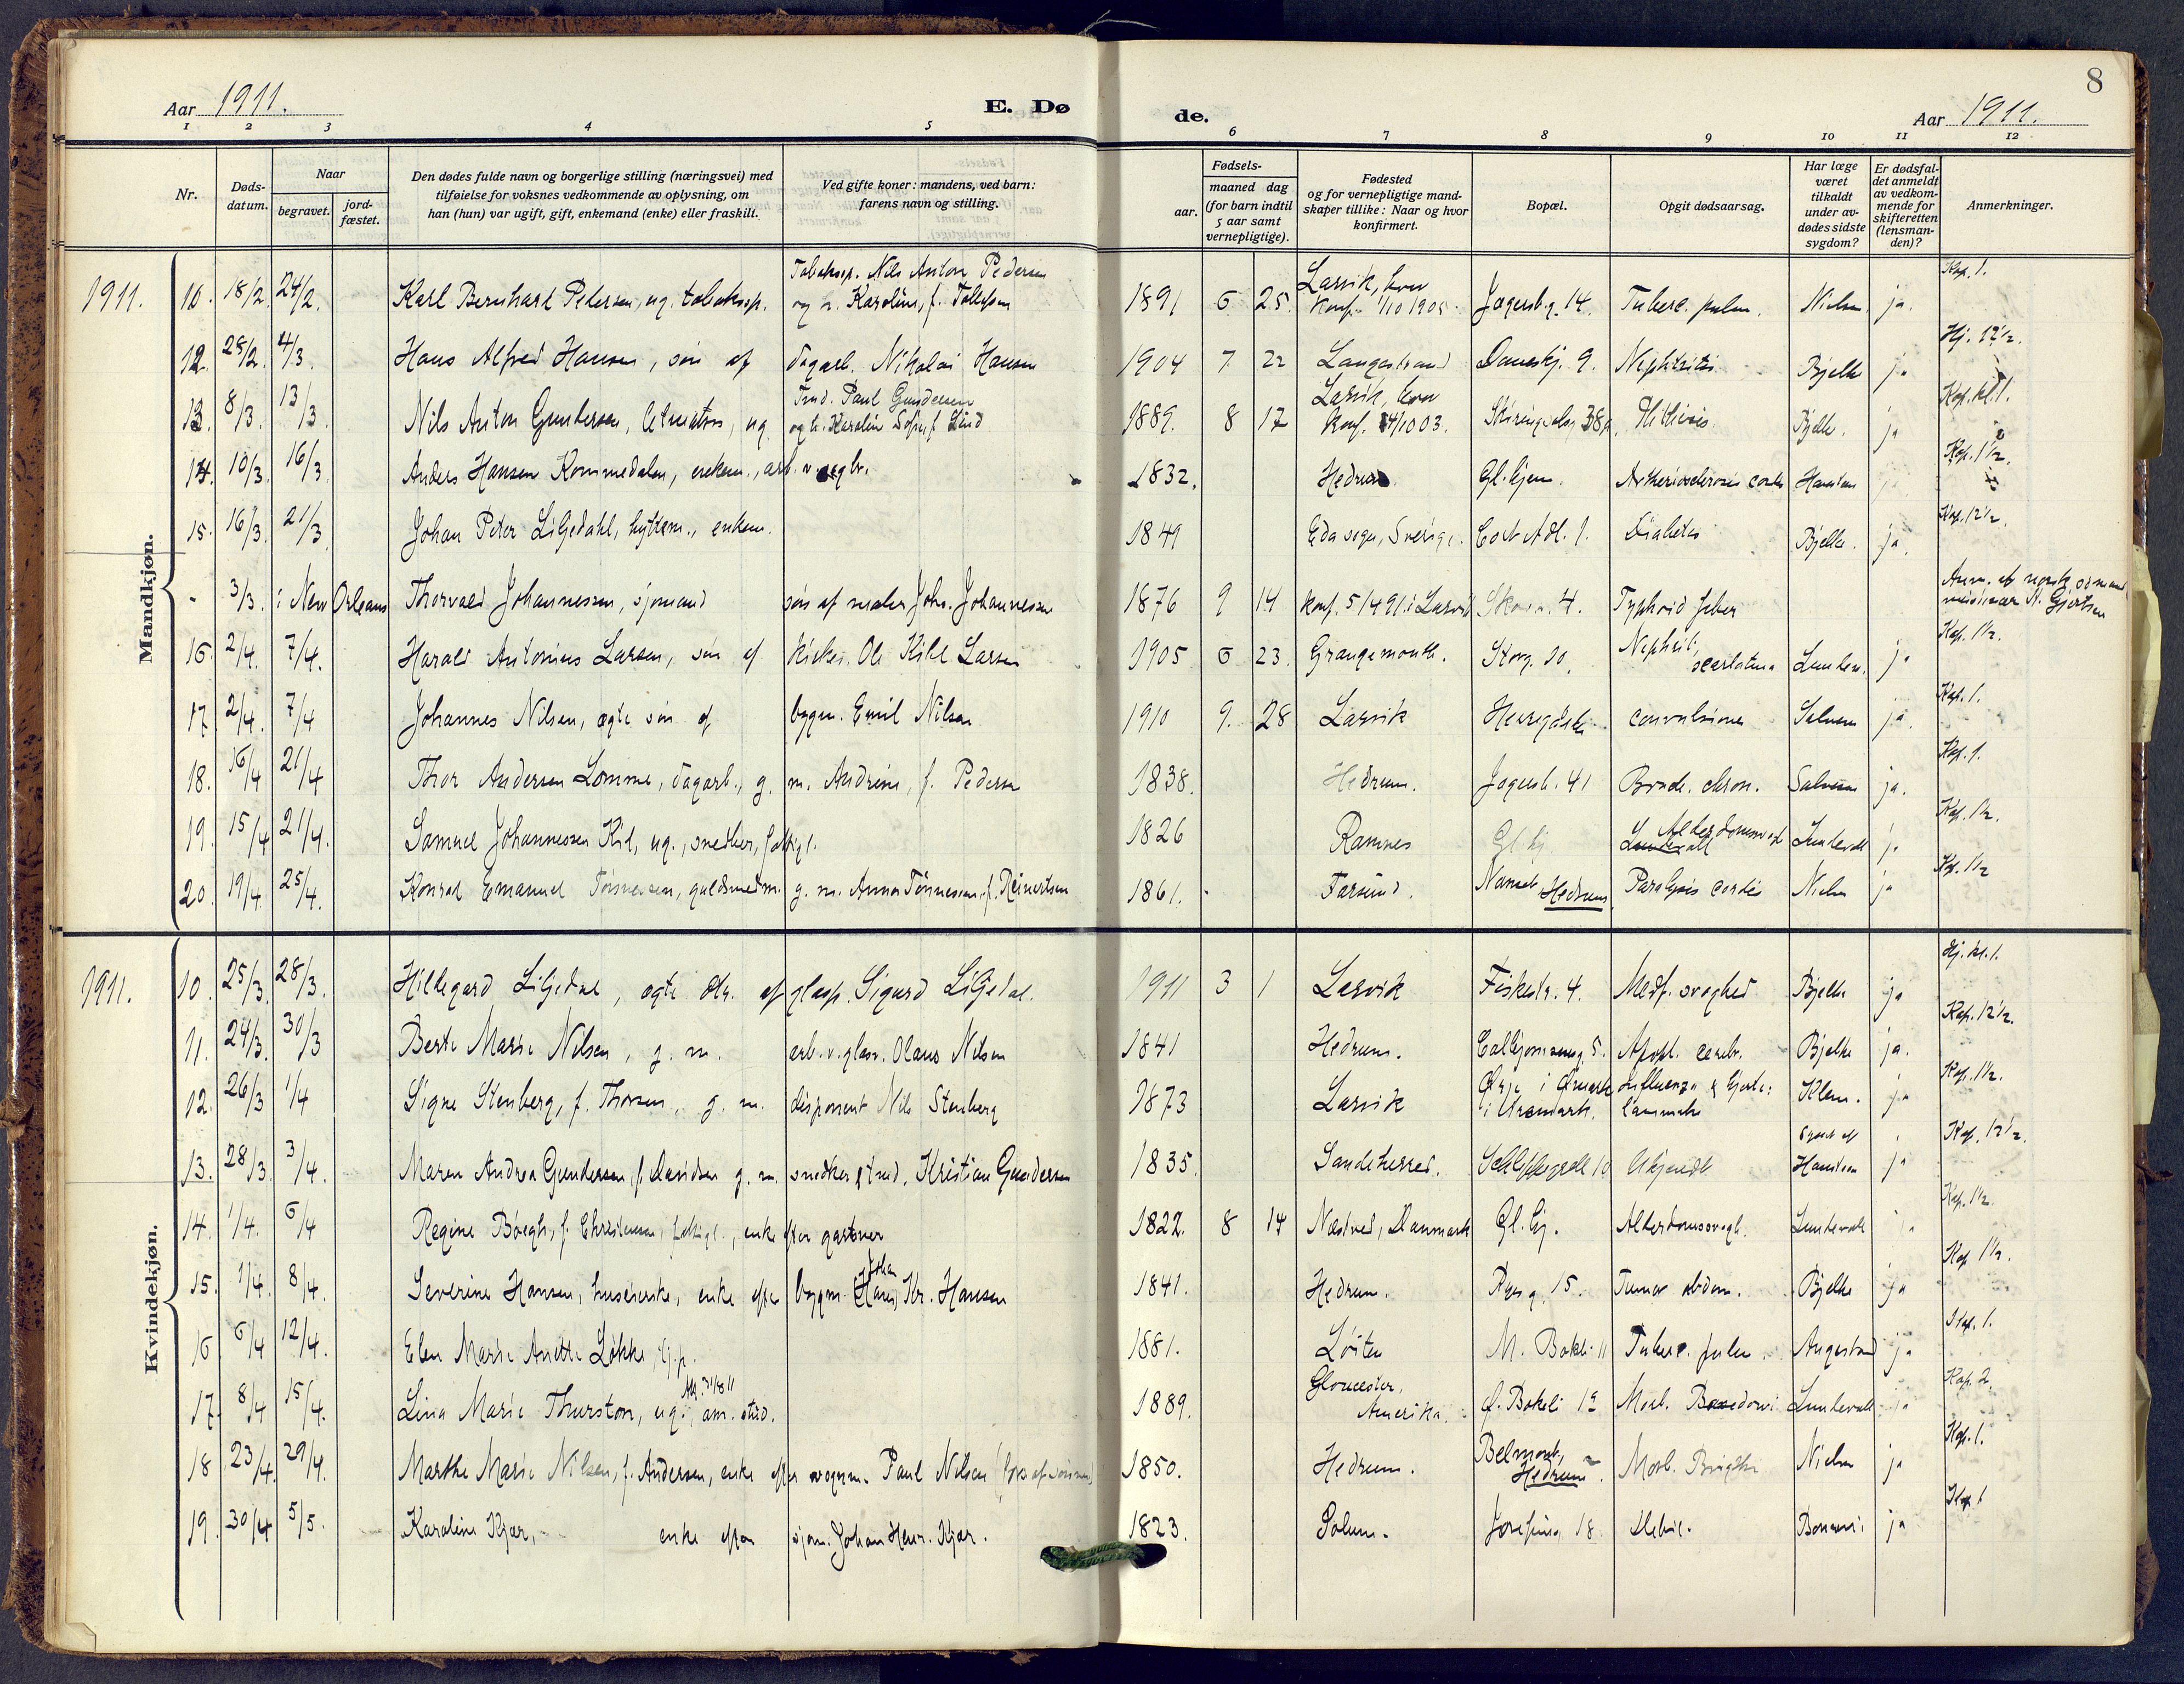 8
Aar 1911. E. Døde. Aar 1911.
1 2 3 4 5 6 7 8 9 10 11 12
Nr.
Døds-
datum.
Naar
begravet.
jord-
fæstet.
Den dødes fulde navn og borgerlige stilling (næringsvei) med
tilføielse for voksnes vedkommende av oplysning, om
han (hun) var ugift, gift, enkemand (enke) eller fraskilt.
Ved gifte koner: mandens, ved barn:
farens navn og stilling.
Fødsels-
aar.
maaned dag
(for barn indtil
5 aar samt
vernepligtige).
Fødested
og for vernepligtige mand-
skaper tillike: Naar og hvor
konfirmert.
Bopæl.
Opgit dødsaarsag.
Har læge
været
tilkaldt
under av-
dødes sidste
sygdom?
Er dødsfal-
det anmeldt
av vedkom-
mende for
skifteretten
(lensman-
den)?
Anmerkninger.
Mandkjøn.
1911. 10. 18/2. 24/2. Karl Bernhard Pedersen, ug. tobaksp. Tobaksp. Nils Anton Pedersen
og h. Karoline, f. Tollefsen 1891 6 25. Larvik, hvor
konf. 1/10 1905. Jegersbg. 14. Tuberc. pulm. Nielsen ja. Kap. 1.
12. 28/2. 4/3. Hans Alfred Hansen, søn af dagarb. Nikolai Hansen 1904 7 22 Langestrand Daneskj. 9. Nephritis Bjelke ja Hj. 12½.
13. 8/3. 13/3 Nils Anton Gundersen, ug. Tred. Paul Gundersen
og h. Karoline Sofie f. Lind 1889. 8 17 Larvik, hvor
konf. 4/10 03. Bjelke. ja Kap. kl. 1.
14. 10/3. 16/3. Anders Hansen Kommedalen, enkem., arb. v. 1832. Hedrum Gl. hjem. Artheriosclerosis cordis Kap. 1½.
15. 16/3. 21/3. Johan Peter Liljedahl, hyttem., enkem. 1849 Eda sogn, Sverige. Diabetes Bjelke. ja. Kap. 12½.
- 3/3. i New Orleans Thorvald Johannessen, sjømand søn af maler Johs. Johannessen 1876 9 14 konf. 5/4 91. i Larvik 4. Typhoid feber Anm. af norsk sømands
missionær Gjertsen
16. 2/4. 7/4. Harald Antonius Larsen, søn af Ole Larsen 1905 6 23. Grangemouth. Storg. 20. Nephrit.
scarlatina ja Kap. 1½.
17. 2/4. 7/4 Johannes Nilsen, ægte søn af bygm. Emil Nilsen 1910 9. 28 Larvik convulsiones ja. Kap. 1.
18. 16/4 21/4 Thor Andersen Lomme, dagarb., g. m. Andrine, f. Pedersen 1838. Hedrum. Jegersb. 41 Bronch. chron. Salvesen ja. Kap. 1.
19. 15/4 21/4. Samuel Johannessen ug., snedker, 1826 Ramnes Gl. hj. Alderdomssvagh. Lundevall ja Kap. 1½.
20. 19/4. 25/4. Konrad Emanuel Tønnessen, guldsmedm. g. m. Anna Tønnessen, f. Reinertsen 1861. Farsund. Hedrum. Paralysis cordis Nielsen ja Kap. 1½
Kvindekjøn.
1911. 10. 25/3. 28/3. Hildegard Liljedal, ægte dtr. af glasp. Sigurd Liljedal. 1911 3 1 Larvik Fiskestr. 4. Medf. svaghed Bjelke ja Hj. kl. 1.
11. 24/3. 30/3 Berte Marie Nilsen, g. m. arb. v. glasv. Olaus Nilsen 1841 Hedrum. Apopl. cerebr. Bjelke ja. Kap. 12½.
12. 26/3 1/4 Signe Stenberg, f. Thorsen, g. m. disponent Nils Stenberg 1873 Larvik Ørje i Ømark
i Aremark. Influenza & hjerte-
lammelse Klem. ja Kap. 1½.
13. 28/3. 3/4. Maren Andrea Gundersen, f. Davidsen g. m. snedker Kristian Gundersen 1835. Sandeherred. Ukjendt ja Kap. 12½.
14. 1/4. 6/4 Regine Børgh, f. Christensen, enke efter gartner 1822. 8 14 Næstved, Danmark Gl. hj. Alderdomssvagh. Lundevall ja Kap. 1½.
15. 1/4. 8/4. Severine Hansen, huseierske, enke efter bygm. (Hans) Johan Kr. Hansen 1841. Hedrum. 15. Tumor abdom. Bjelke ja Kap 1½.
16 6/4 12/4. Elen Marie Anette Løkke, tj.p. 1881. Løiten M. Bøkeli 11 Tuberc. pulm. Augestad ja Kap. 1.
17. 8/4 15/4. Lina Marie Thurston, ug., am. stud. 1889. Gloucester,
Amerika. Ø. Bøkeli 12 Morb. Basedowi Lundevall ja Kap. 2
18 23/4. 29/4. Marthe Marie Nilsen, f. Andersen, enke efter vognm. Paul Nilsen (fors. af sønnen) 1850. Hedrum. Belmont,
Hedrum. Morb. Brigthi Nielsen ja Kap. 1.
19. 30/4 5/5. Karoline Kjær, enke efter sjøm. Johan Henr. Kjær. 1823. Solum. 18. ja Kap 1